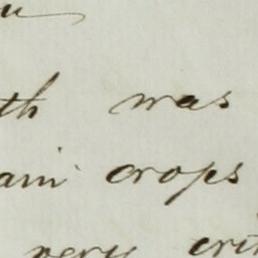 th was
ain crops
very crit